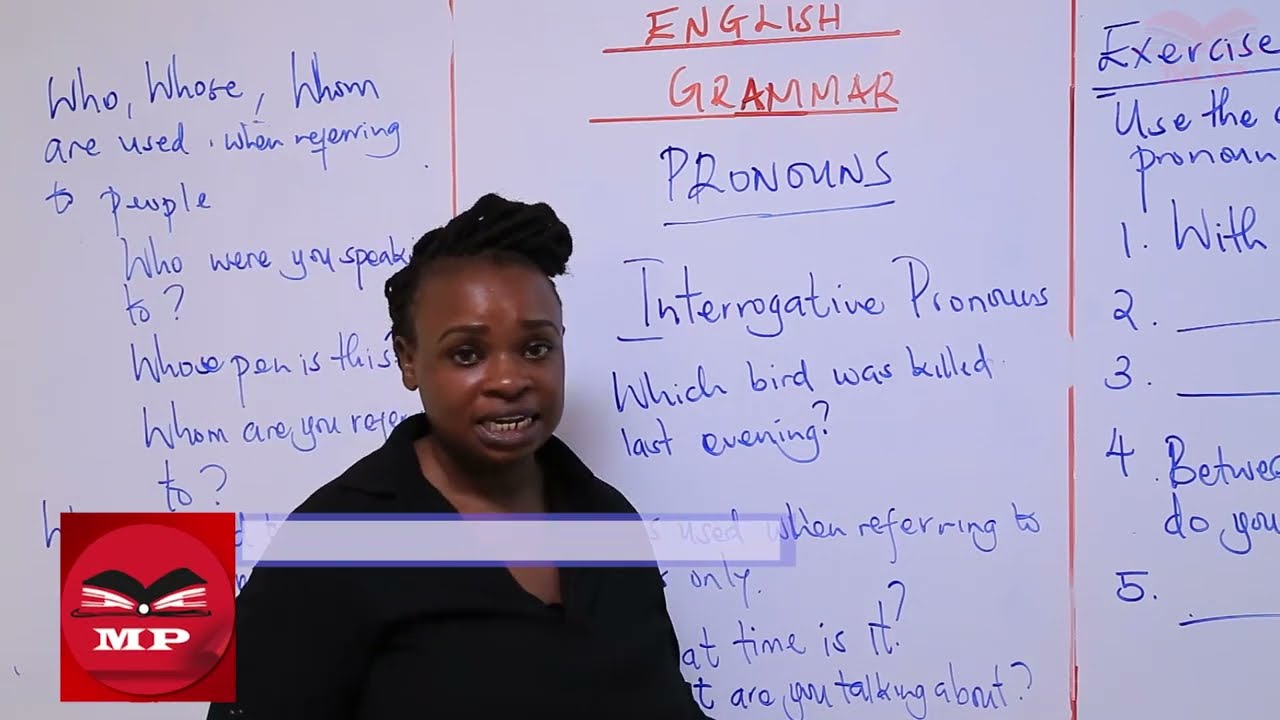 Who, Whose, Whom
are used when referring
to people
Who were you speak
to?
Whose pen is this?
Whom are you refer
to?
ENGLISH
GRAMMAR
PRONOUNS
Interrogative Pronouns
Which bird was killed
last evening?
used when referring to
only.
at time is it?
t are you talking about?
Exercise
Use the
pronoun
1. With
2.
3.
4. Betwee
do you
5.
MP